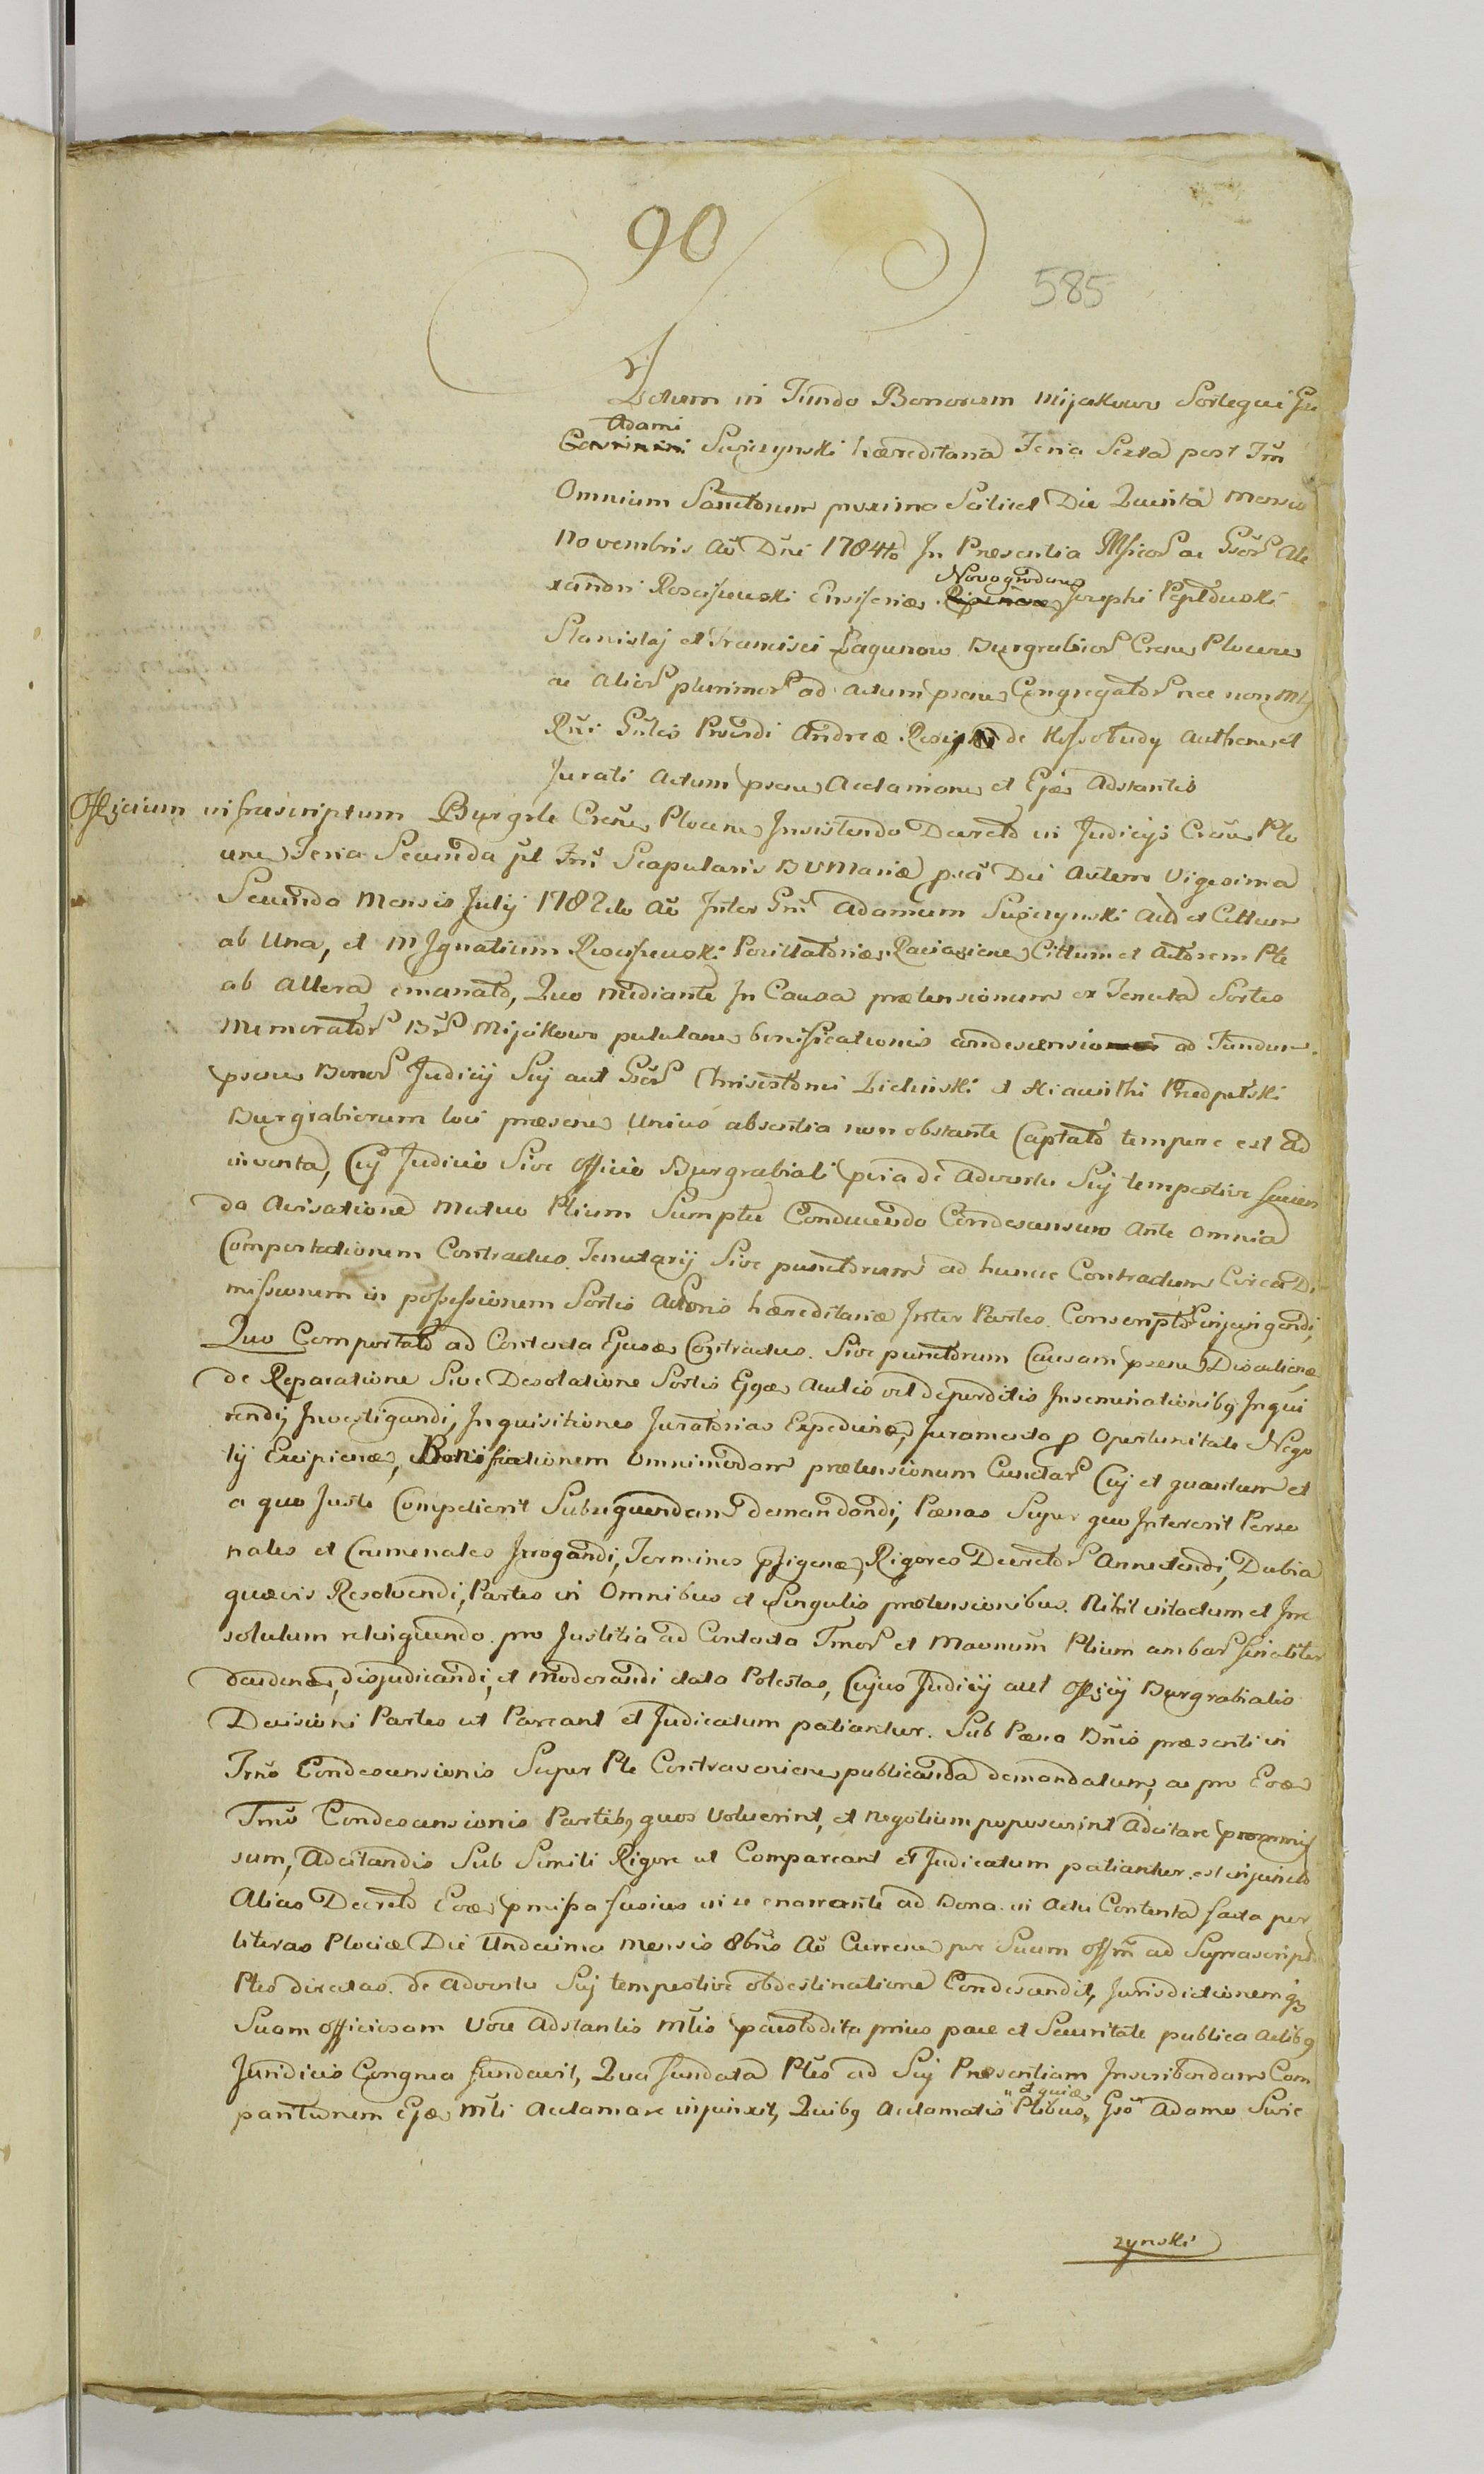 90
585
Actum in Fundo Bonorum Mijakowo Sorteque Gsi
Adami
Swięszynski hæreditaria Feria Sexta post Fm̃
Omnium Sanctorum proxima Scilicet Die Quinta Mensis
Novembris Aõ Dñi 1784to In Præsentia Mficor ac Gsor Ale
Novogroden
xandri Rosciszewski Ensiferiæ Josephi Pepłowski
Stanislaj et Francisci Łagunow Burgrabior Cren Plocen
ac Alior plurimor ad Actum psen Congregator nec non
Rñi Gñlis Prvidi Andreæ de Kossobudy Authen et
Jurati Actum psen Acclaman et Ejᵉ Adstantis
Officium infrascriptum Burgrle Creñ Plocen Insistendo Decreto in Judicijs Creñ Plo
cen Feria Secunda pt Fm̃ Scapularis B V Mariæ pcã Die Autem Vigesima
Secunda Mensis Julij 1782do Aõ Inter Gm̃ Adamum Swięszynski Act et Cittum
ab Una, et M Ignatium Rosciszewski Pocillatoriæ Raciazien Cittum et Actorem Pte
ab Altera emanato, Quo mediante In Causa prætensionum ex Tenuta Sortis
Memorator Br Mijakowo pululan bonificationis condescensio ad Fundum
psen Bonor Judicij Sui aut Gsor Chrisostomi Zielinski et Hiacinthi Przedpełski
Burgrabiorum loci præsen Unius absentia non obstante Captato tempore est ad
inventa, Cuj Judicio Sive Officio Burgrabiali pvia de Adventu Suj tempestive facien
da Avisatione Mutuo Ptium Sumptu Conducendo Condescensuro Ante Omnia
Comportationem Contractus Tenutarij Sive punctorum ad huncce Contractum Circa Di
missionem in possessionem Sortis Actoris hæreditariæ Inter Partes Conscriptor injungendi,
Quo Comportato ad Contenta Ejusᵉ Contractus Sive punctorum Causam psen Discutien
de Reparatione Sive Desolatione Sortis Ejᵉ Auctis vel deperditis Inseminationibq Inqui
rendi, Investigandi, Inquisitiones Juratorias Expedien, Juramenta p Oportunitate Nego
tij Excipien, Bonificationem Omnimodam prætensionum Cunctar Cuj et quantum et
a quo Juste Competierit Subsequendam demandandi, Pœnas Super quo Intererit Perso
nales et Crumenales Irrogandi, Terminos pfigen, Rigores Decretor Annectendi, Dubia
quævis Resolvendi, Partes in Omnibus et Singulis prætensionibus Nihil intactum et Irre
solutum relinquendo pro Justitia ad Contenta Tmor et Munim̃ Ptium ambar finaliter
deciden, disjudicandi, et Moderandi data Potestas, Cujus Judicij aut Officij Burgrabialis
Decisioni Partes ut Pareant et Judicatum patiantur Sub Pæna Bñis præsenti in
Trño Condescensionis Super Pte Contravenien publicanda demandatum, ac pro Eoᵉ
Trño Condescensionis Partibq quos Voluerint, et negotium poposcerint Adcitare prommis
sum, Adcitandis Sub Simili Rigore ut Compareant et Judicatum patiantur est injuncto
Alias Decreto Eoᵉ pmissa fusius in se enarrante ad Bona in Actu Contenta facta per
literas Plociæ Die Undecima Mensis 8bris Aõ Curren per Suum Offm̃ ad Suprascript
Ptes directas de Adventu Suj tempestive obdestinatione Condescendit, Jurisdictionemq
Suam Officiosam Voce Adstantis Mlis pcustodita prius pace et Securitate publica Actibq
Juridicis Congrua fundavit, Qua fundata Ptes ad Suj Præsentiam Inscribendam Com
et quidᵉ
parituram Ejᵉ Mli Acclamare injunxit, Quibq Acclamatis Ptibus, Gso Adamo Swię
szynski